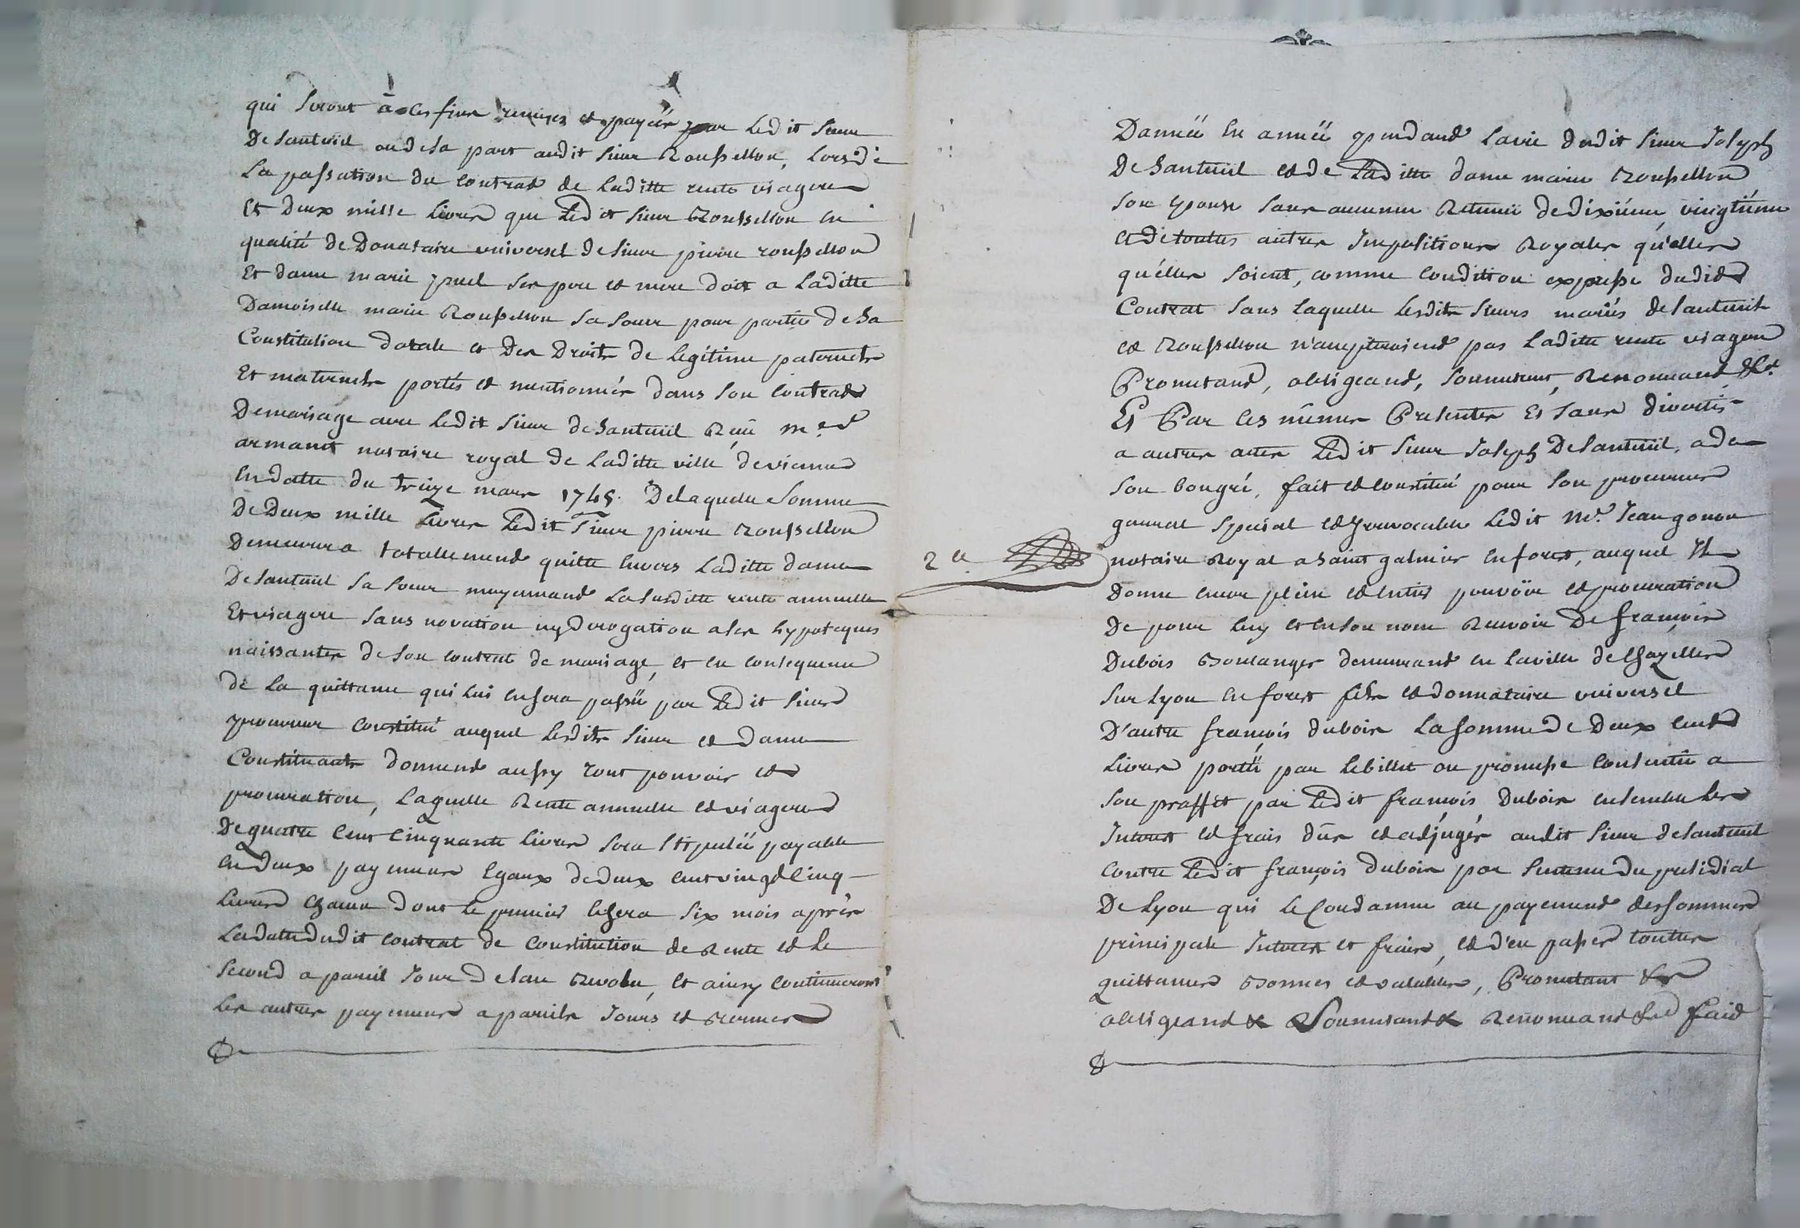 qui seront à ces fins remises et payées par Ledit sieur
De santeüil ou de sa part audit sieur Roussellon, Lors de
La passation du contrat de Laditte rente viagere
Et Deux mille Livres que Ledit sieur Roussellon en
qualité de Donataire universel de sieur pierre roussellon
Et dame marie ses pere et mere doit a Laditte
Damoiselle marie Roussellon sa soeur pour partie de sa
Constitution dotale et Des Droits de Legitime paternels
Et maternels portés et mentionnés dans son contrat
De mariage avec Ledit sieur de santeüil Reçû me
armanet notaire royal de Laditte ville de vienne
En datte du treize mars 1745. De laquelle somme
De Deux mille Livres Ledit sieur pierre Roussellon
Demeurera totallement quitte Envers Laditte dame
De santeüil sa soeur moyennant La susditte rente annuelle
Et viagere sans novation ny derogation a ses hypoteques
naissantes de son contrat de mariage, et en consequence
de La quittance qui Lui en sera passée par Ledit sieur
procureur constitué auquel Lesdits sieur et dame
Constituants donnent aussy tout pouvoir et
procuration, Laquelle Rente annuelle et viagere
De quatre Cent Cinquante Livres sera stipulée payable
En deux payements Egaux de deux cent vingt Cinq
Livres chacun dont Le premier Echera six mois après
La datte dudit contrat de constitution de Rente et Le
second a pareil jour de lan Revolu, et ainsy continueront
Les autres payements a pareils jours et termes
D'année En année pendant La vie dudit sieur Joseph
De Santeüil et de Laditte dame marie Roussellon
son epouse sans aucune Retenüe de dixiéme, vingtiéme
et de toutes autres Impositions Royales qu'elles
qu'elles soient, comme condition expresse dudit
Contrat sans Laquelle Lesdits sieurs mariés de santeüil
et Roussellon n'accepteroient pas Laditte rente viagere
Promettant, obligeant, soumettant, Renonçant &ca.
Et Par ces mêmes Presentes Et sans divertir
a autres actes Ledit sieur Joseph De santeüil, a de
son bon gré, fait et constitué pour son procureur
general special et Irrevocable Ledit Mr. Jean gonon
2a. notaire Royal a saint galmier en forest, auquel Il
donne encore plein et entier pouvoir et procuration
De pour Luy et en son nom Recevoir De françois
Dubois Boulanger demeurant en La ville de Chazelles
sur Lyon en forest fils et donnataire universel
D'autre françois dubois La somme de Deux cent
Livres portée par Le billet ou promesse consentie a
son proffit par Ledit françois Dubois ensemble Les
Interest et frais dûs et adjugés audit sieur de santeüil
contre Ledit françois Dubois par sentence du presidial
De Lyon qui Le Condamne au payement des sommes
principale Interest et frais, et d'en passer toutes
quittances Bonnes et valables, Promettant &
obligeant & Soumettant & Renonçant &a fait